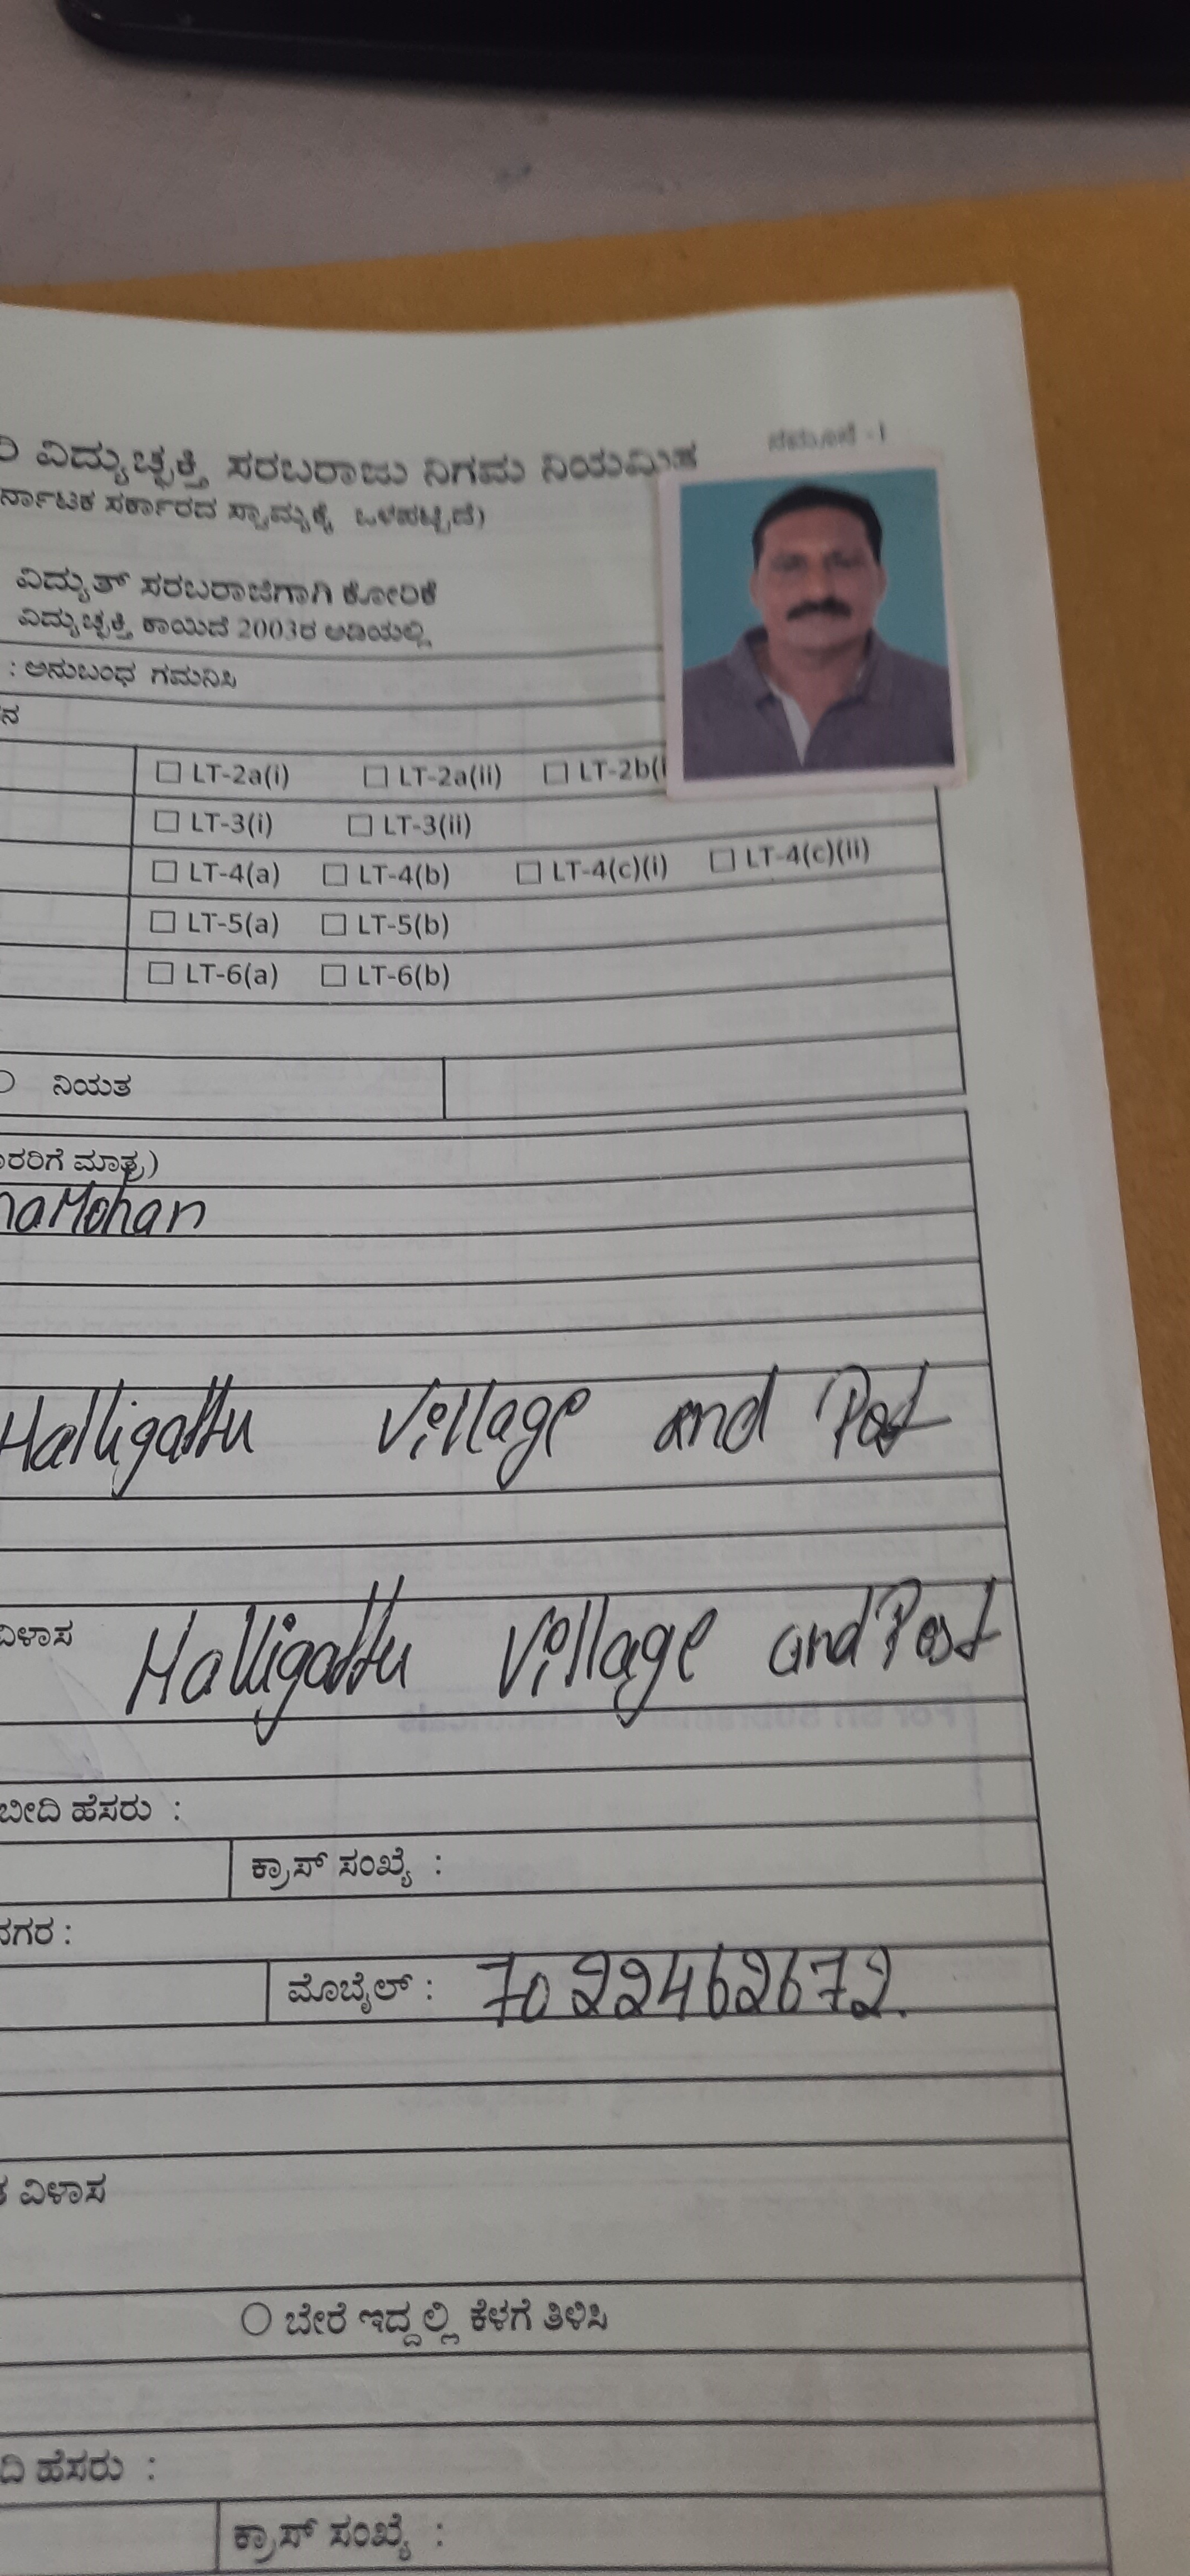 ನಮೂನೆ -1
ವಿದ್ಯುಚ್ಛಕ್ತಿ ಸರಬರಾಜು ನಿಗಮ ನಿಯಮಿತ
ಸರ್ಕಾರದ ಸ್ವಾಮ್ಯಕ್ಕೆ ಒಳಪಟ್ಟಿದೆ)
ವಿದ್ಯುತ್ ಸರಬರಾಜಿಗಾಗಿ ಕೋರಿಕೆ
ವಿದ್ಯುಚ್ಛಕ್ತಿ ಕಾಯಿದೆ 2003ರ ಅಡಿಯಲ್ಲಿ
: ಅನುಬಂಧ ಗಮನಿಸಿ
☐ LT-2a(i) ☐ LT-2a(ii) ☐ LT-2b(i
☐ LT-3(i) ☐ LT-3(ii)
☐ LT-4(a) ☐ LT-4(b) ☐ LT-4(c)(i) ☐ LT-4(c)(ii)
☐ LT-5(a) ☐ LT-5(b)
☐ LT-6(a) ☐ LT-6(b)
ನಿಯತ
ಮಾತ್ರ)
naMohan
Halligattu Village and Post
ವಿಳಾಸ Halligattu Village and Post
ಬೀದಿ ಹೆಸರು :
ಕ್ರಾಸ್ ಸಂಖ್ಯೆ :
ನಗರ :
ಮೊಬೈಲ್ : 7022462672.
ವಿಳಾಸ
○ ಬೇರೆ ಇದ್ದಲ್ಲಿ ಕೆಳಗೆ ತಿಳಿಸಿ
ದಿ ಹೆಸರು :
ಕ್ರಾಸ್ ಸಂಖ್ಯೆ :